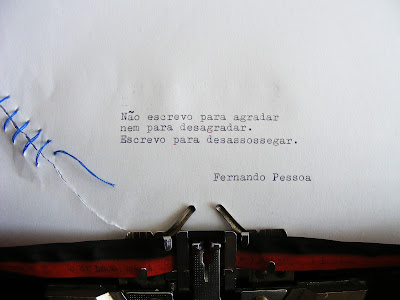 Não escrevo para agradar
nem para desagradar.
Escrevo para desassossegar.
Fernando Pessoa